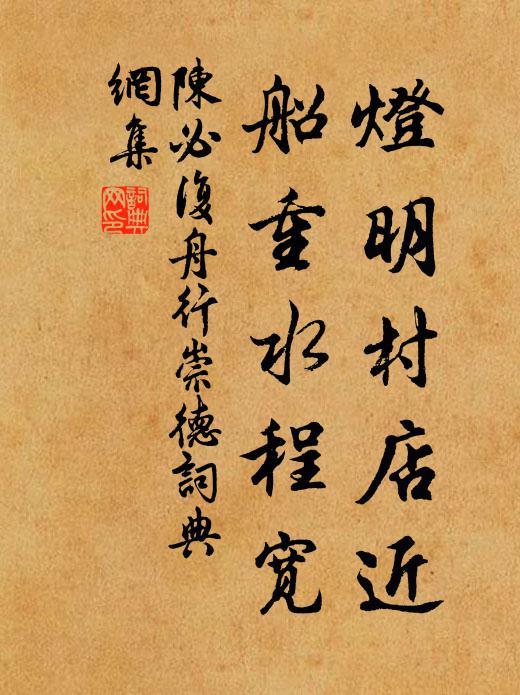 燈明村店近
船重水程寬
陳必復舟行崇德詞典
網集
詞典網印